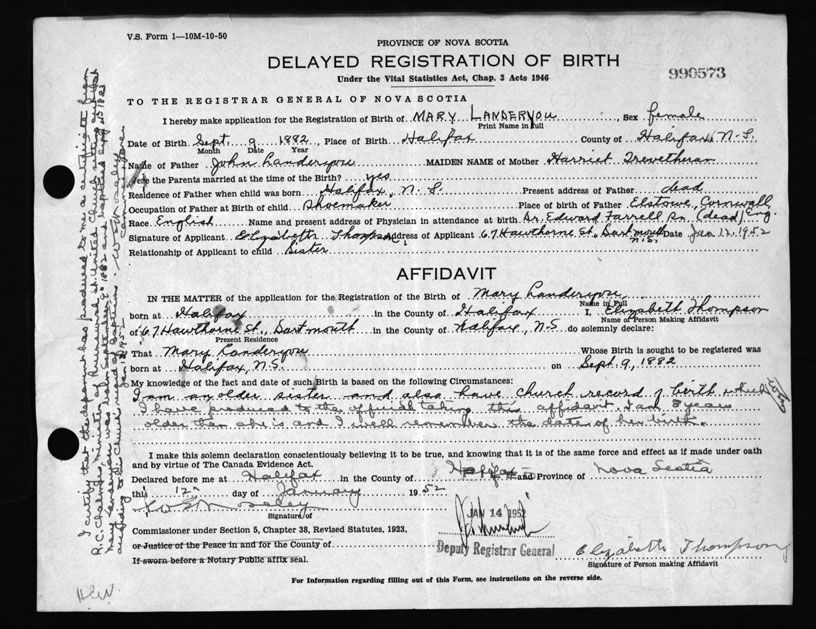 V.S. Form 1—10M-10-50
PROVINCE OF NOVA SCOTIA
DELAYED REGISTRATION OF BIRTH
990573
Under the Vital Statistics Act, Chap. 3 Acts 1946
TO THE REGISTRAR GENERAL OF NOVA SCOTIA
I hereby make application for the Registration of Birth of MARY LANDERYOU, Sex female
Print Name in Full
Date of Birth Sept. 9 1882, Place of Birth Halifax County of Halifax, N.S.
Month Date Year
Name of Father John Landeryou MAIDEN NAME of Mother Harriet Trewetheran
Were the Parents married at the time of Birth? yes
Residence of Father when child was born Halifax, N.S. Present address of Father dead
Occupation of Father at Birth of child Shoemaker Place of birth of Father Elstowe, Cornwall, Eng.
Race English Name and present address of Physician in attendance at birth Dr. Edward Farrell Sr. (dead)
Signature of Applicant Elizabeth Thompson Address of Applicant 67 Hawthorne St., Dartmouth N.S. Date Jan 12, 1952
Relationship of Applicant to child Sister
AFFIDAVIT
IN THE MATTER of the application for the Registration of Birth of Mary Landeryou
Name in Full
born at Halifax in the County of Halifax I, Elizabeth Thompson
Name of Person Making Affidavit
of 67 Hawthorne St., Dartmouth in the County of Halifax, N.S. do solemnly declare:
Present Residence
That Mary Landeryou Whose Birth is sought to be registered was
born at Halifax, N.S. on Sept. 9, 1882
My knowledge of the fact and date of such Birth is based on the following Circumstances:
I am an older sister and also have church record of birth which
I have produced to the official taking this affidavit. I am 8 years
older than she is and I well remember the date of her birth.
I make this solemn declaration conscientiously believing it to be true, and knowing that it is of the same force and effect as if made under oath
and by virtue of The Canada Evidence Act.
Declared before me at Halifax in the County of Halifax and Province of Nova Scotia
this 12th day of January 1952
Signature of
JAN 14 1952
Commissioner under Section 5, Chapter 38, Revised Statutes, 1923.
or Justice of the Peace in and for the County of
Deputy Registrar General
Elizabeth Thompson
If sworn before a Notary Public affix seal.
Signature of Person making Affidavit
For Information regarding filling out of this Form, see instructions on the reverse side.
I certify that the deponent has produced to me a certificate from
R.C. Chalmers Minister of Brunswick St. United Church setting out that
Mary Landeryou was born Sept. 9, 1882 and baptized
according to the Church record of baptisms.